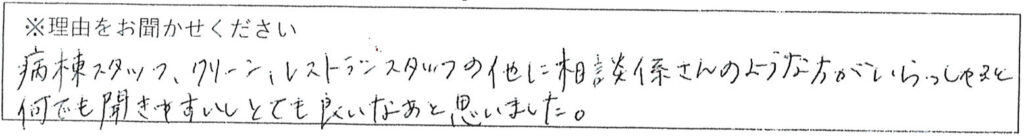 ※理由をお聞かせください
病棟スタッフ、クリーン、レストランスタッフの他に相談係さんのような方がいらっしゃると
何でも聞きやすいしとても良いなあと思いました。